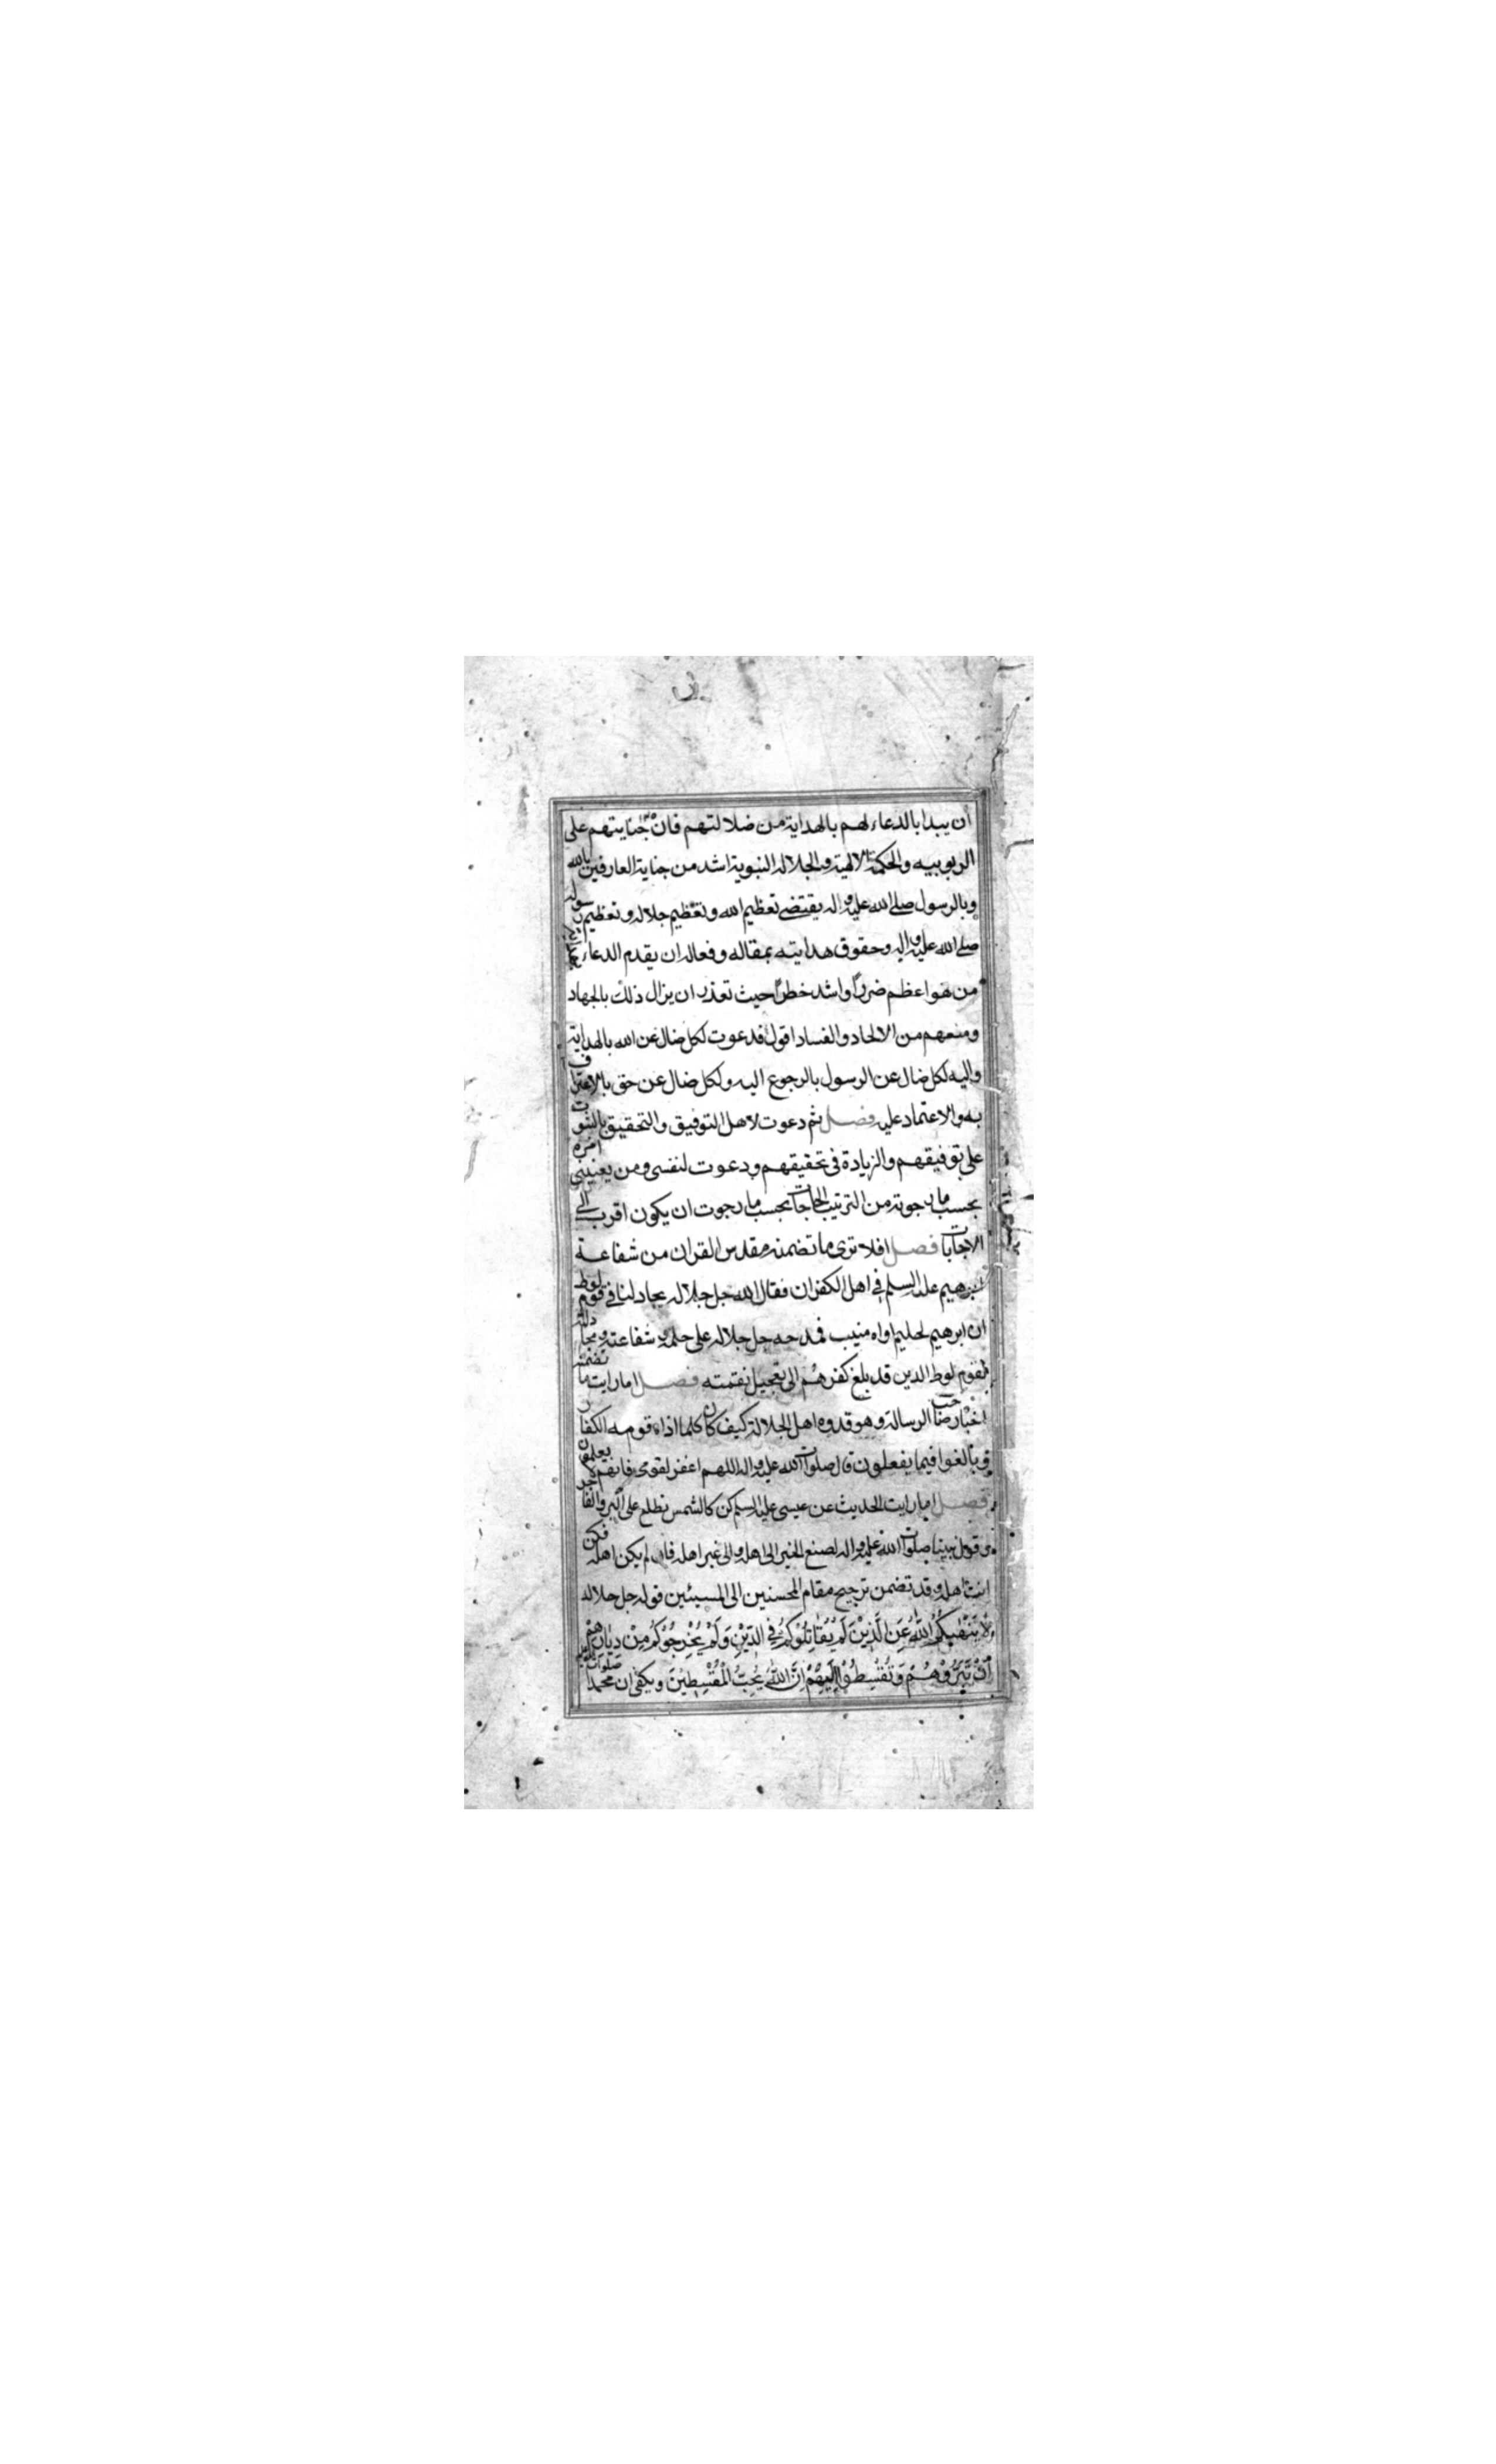 أن يبدا بالدعاء لهم بالهداية من ضلالتهم فان جنايتهم على
الربوبيه والحكمة الالهية والجلاله النبوية اشد من جناية العارفين بالله
وبالرسول صلى الله عليه واله يقتضى تعظيم الله وتعظيم جلاله وتعظيم رسوله
صلى الله عليه واله وحقوق هدايته بمقاله وفعاله ان يقدم الدعاء
من هو اعظم ضررا واشد خطرا حيث تعذر ان يزال ذلك بالجهاد
ومنعهم من الالحاد والفساد اقول فدعوت لكل ضال عن الله بالهداية
واليه لكل ضال عن الرسول بالرجوع اليه ولكل ضال عن حق بالاعتراف
به والاعتماد عليه فصل ثم دعوت لاهل التوفيق والتحقيق بالثبوت
على توفيقهم والزيادة فى تحقيقهم ودعوت لنفسى ومن يعنينى امره
بحسب ما رجوته من الترتيب الحاجات بحسب ما رجوت ان يكون اقرب الى
الاجابات فصل افلا ترى ما تضمنه مقدس القران من شفاعة
ابرهيم عليه السلم فى اهل الكفران فقال الله جل جلاله يجادلنا فى قوم لوط
ان ابرهيم لحليم اواه منيب فمدحه جل جلاله على حلمه وشفاعته ومجادلته
لقوم لوط الدين قد بلغ كفرهم الى تعجيل نقمته فصل اما رايت ما تضمنته
اخبار صاحب الرسالة وهو قدوه اهل الجلالة كيف كان كلما اذاه قومه الكفار
وبالغوا فيما يفعلون قال صلوات الله عليه واله اللهم اغفر لقومى فانهم لا يعلمون
فصل اما رايت الحديث عن عيسى عليه السلم كن كالشمس تطلع على البر والفاجر
وقول نبينا صلوات الله عليه واله اصنع الخير الى اهله والى غير اهله فان لم يكن اهله فكن
انت اهله وقد تضمن ترجيح مقام المحسنين الى المسيئين قوله جل جلاله
لَا يَنْهٰيكُمُ اللّٰهُ عَنِ الَّذِيْنَ لَمْ يُقَاتِلُوْكُمْ فِي الدِّيْنِ وَلَمْ يُخْرِجُوْكُمْ مِنْ دِيَارِهِمْ
اَنْ تَبَرُّوْهُمْ وَتُقْسِطُوْا اِلَيْهِمْ اِنَّ اللّٰهَ يُحِبُّ الْمُقْسِطِيْنَ ويكفى ان محمدا صلوات الله عليه